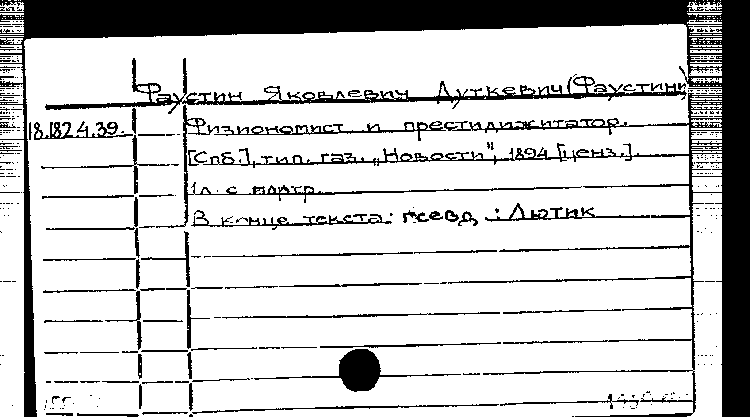 Фаустин Яковлевич Дуткевич (Фаустини)
18.182.4.39. Физиономист и престидижитатор.
[Спб.], тип. газ. „Новости", 1894 [ценз.].
1л. с портр.
В конце текста: псевд.: Лютик